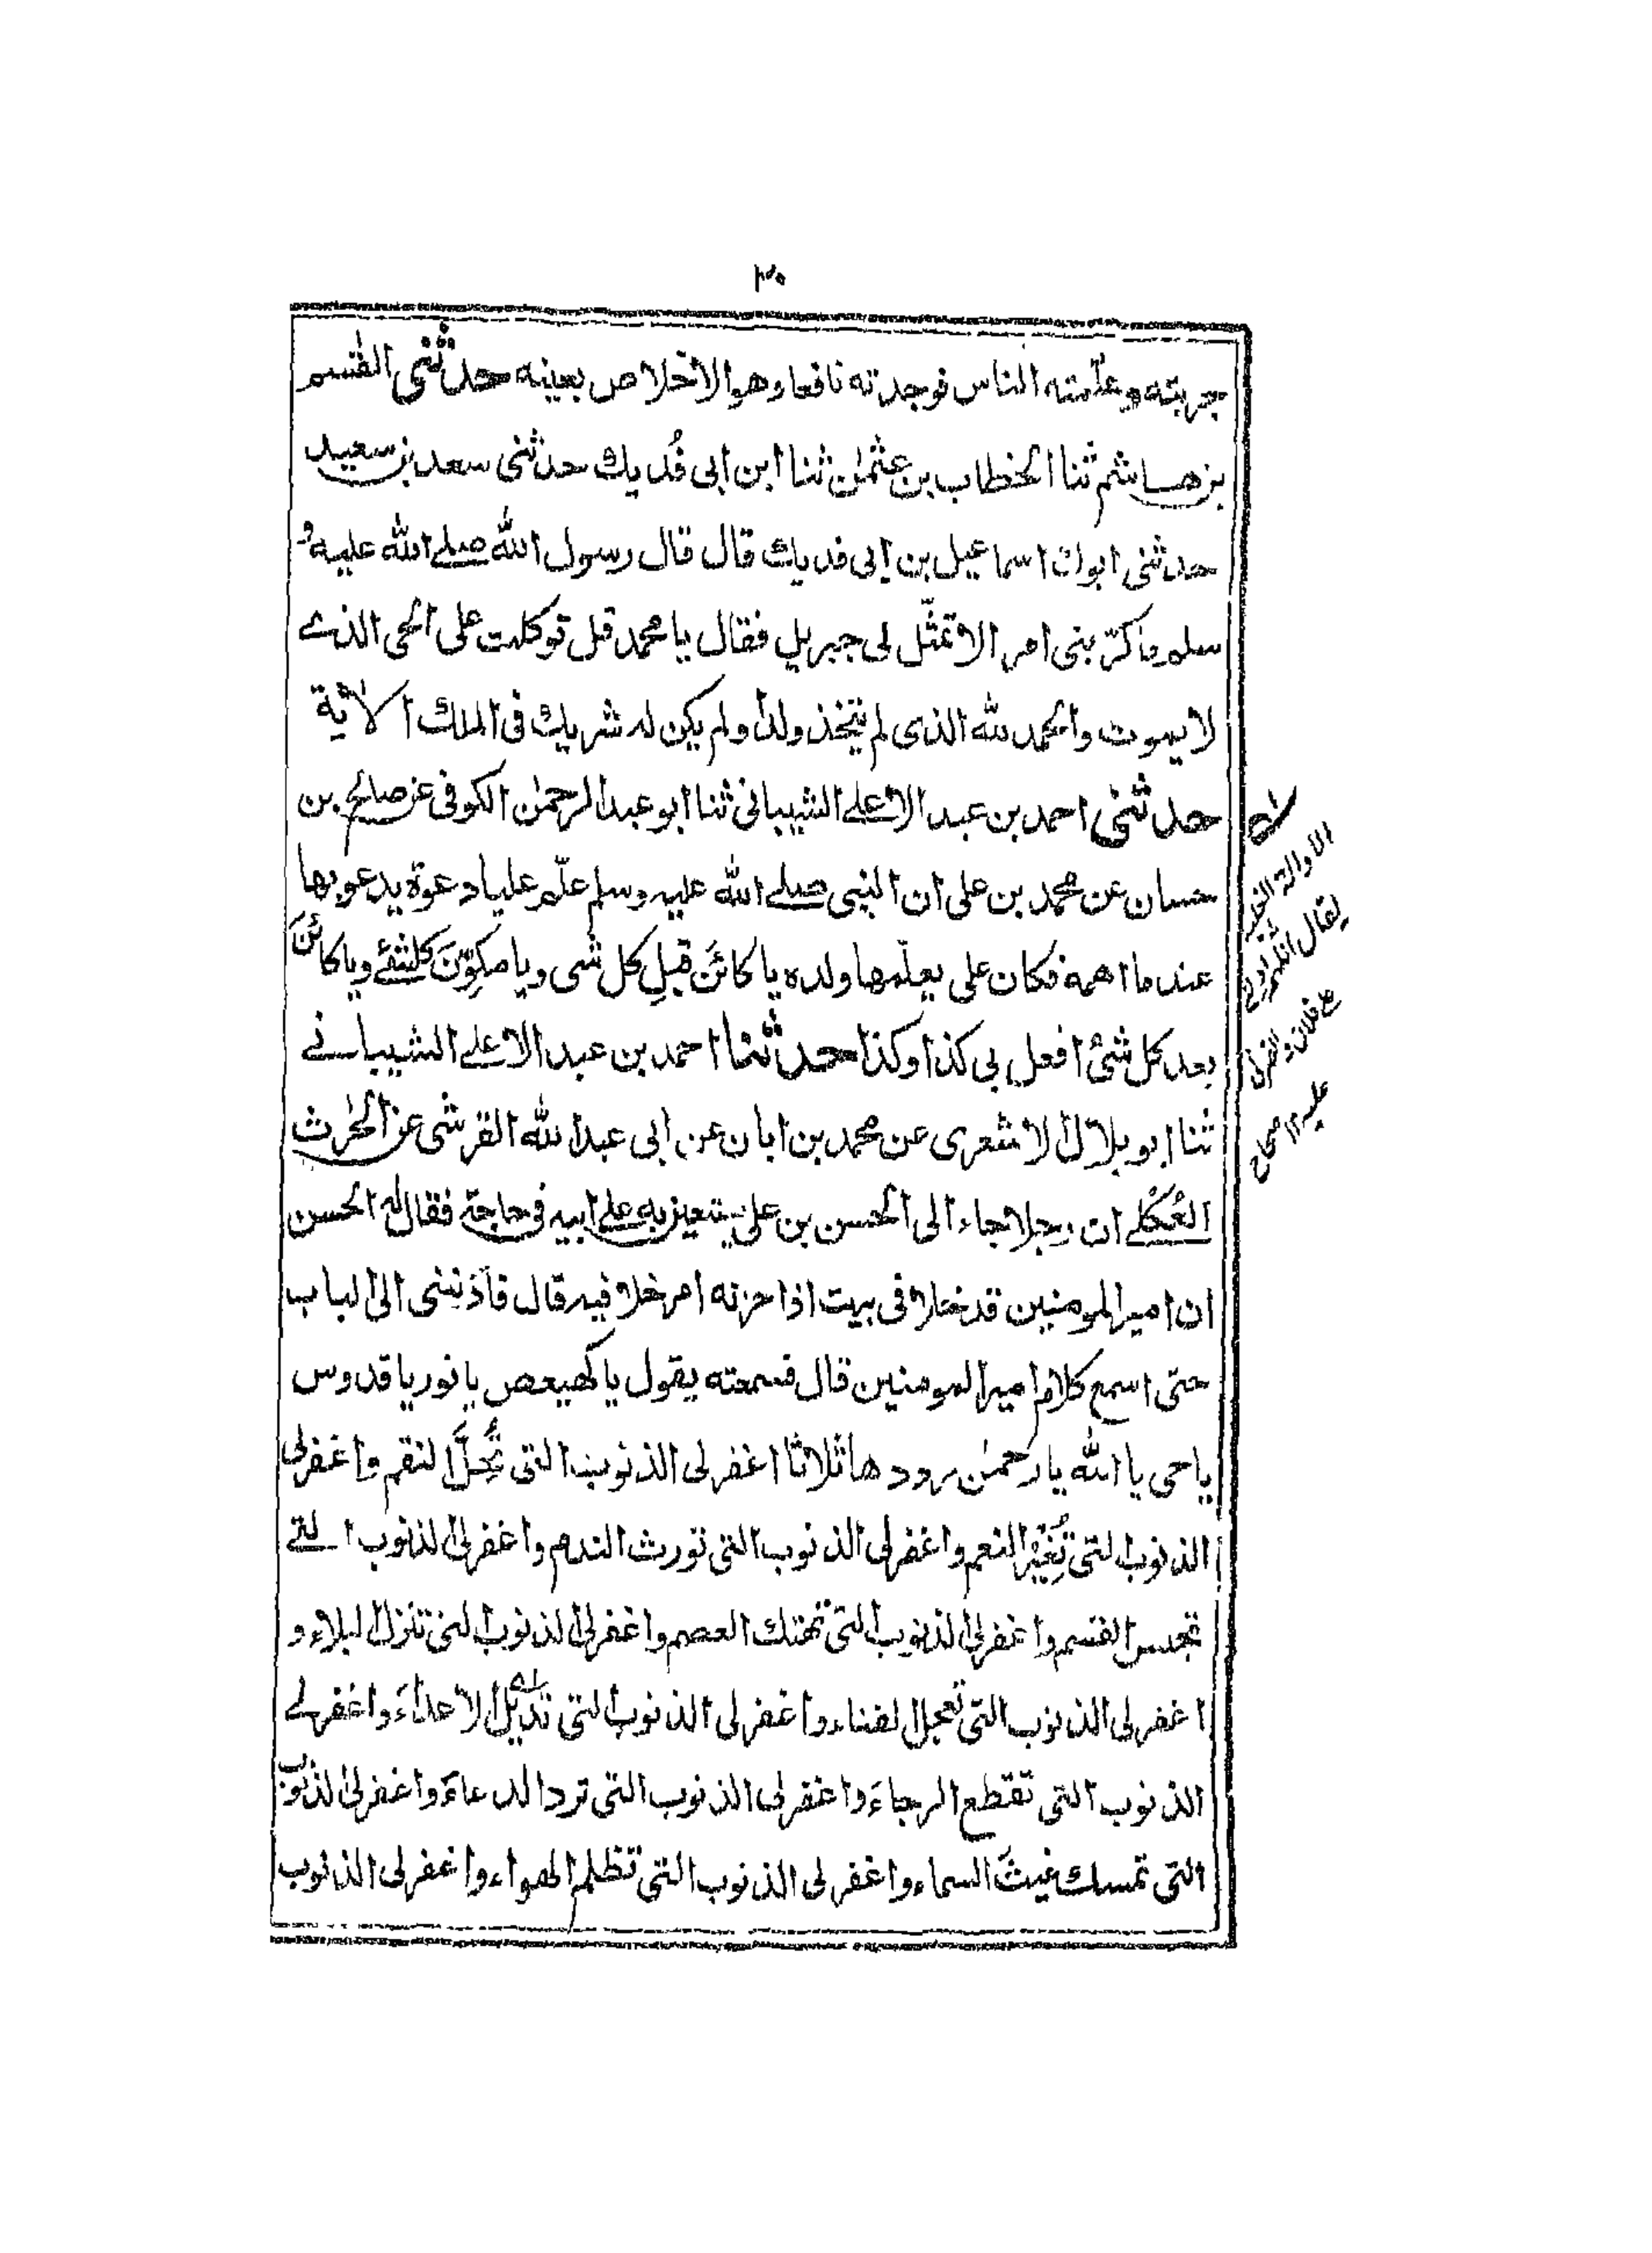 ٣٠
جربته وعلّمته الناس فوجدته نافعا وهو الاخلاص بعينه حدثنى القٰسم
بن هاشم ثنا الخطاب بن عثمٰن ثنا ابن ابى فُديك حدثنى سعد بن سعيد
حدثنى ابوك اسماعيل بن ابى فديك قال قال رسول الله صلے الله عليه و
سلم ما كرّبنى امر الا تمثّل لى جبريل فقال يا محمد قل توكلت على الحى الذے
لا يموت والحمد لله الذى لم يتخذ ولدا ولم يكن له شريك فى الملك الاٰية
حدثنى احمد بن عبد الاعلے الشيبانى ثنا ابو عبد الرحمٰن الكوفى عن صالح بن
حسان عن محمد بن على ان النبى صلے الله عليه وسلم علّم عليا دعوة يدعو بها
عند ما اهمه فكان على يعلّمها ولده يا كائنَ قبلِ كل شى ويا مكوِّنَ كلشئے ويا كائنَ
بعد كل شئ افعل بى كذا وكذا حدثنا احمد بن عبد الاعلے الشيبانے
ثنا ابو بلال الاشعرى عن محمد بن ابان عن ابى عبد الله القرشى عن الحٰرث
العُكْلے ان رجلا جاء الى الحسن بن على يستعين به علے ابيه فى حاجة فقال له الحسن
ان امير المومنين قد خلا فى بيت اذا حزنه امر خلا فيه قال فأدْنِنى الى الباب
حتى اسمع كلام امير المومنين قال فسمعته يقول يا كهيعص يا نور يا قدوس
يا حى يا الله يا رحمٰن رددها ثلاثا اغفر لى الذنوب التى تُحِلّ النقم واغفر لى
الذنوب التى تُغَيِّر النعم واغفر لى الذنوب التى تورث الندم واغفر لى الذنوب التے
تحبس القسم واغفر لى الذنوب التى تهتك العصم واغفر لى الذنوب التى تنزل البلاء و
اغفر لى الذنوب التى تعجل الفناء واغفر لى الذنوب التى تديل الاعداءَ واغفر لے
الذنوب التى تقطع الرجاءَ واغفر لى الذنوب التى ترد الدعاءَ واغفر لى الذنوب
التى تمسك غيثَ السماء واغفر لى الذنوب التى تظلم الهواء واغفر لى الذنوب
الادالة الغلبة
يقال اللهم ادلنى
على فلان وانصرنى
عليه ١٢ صحاح